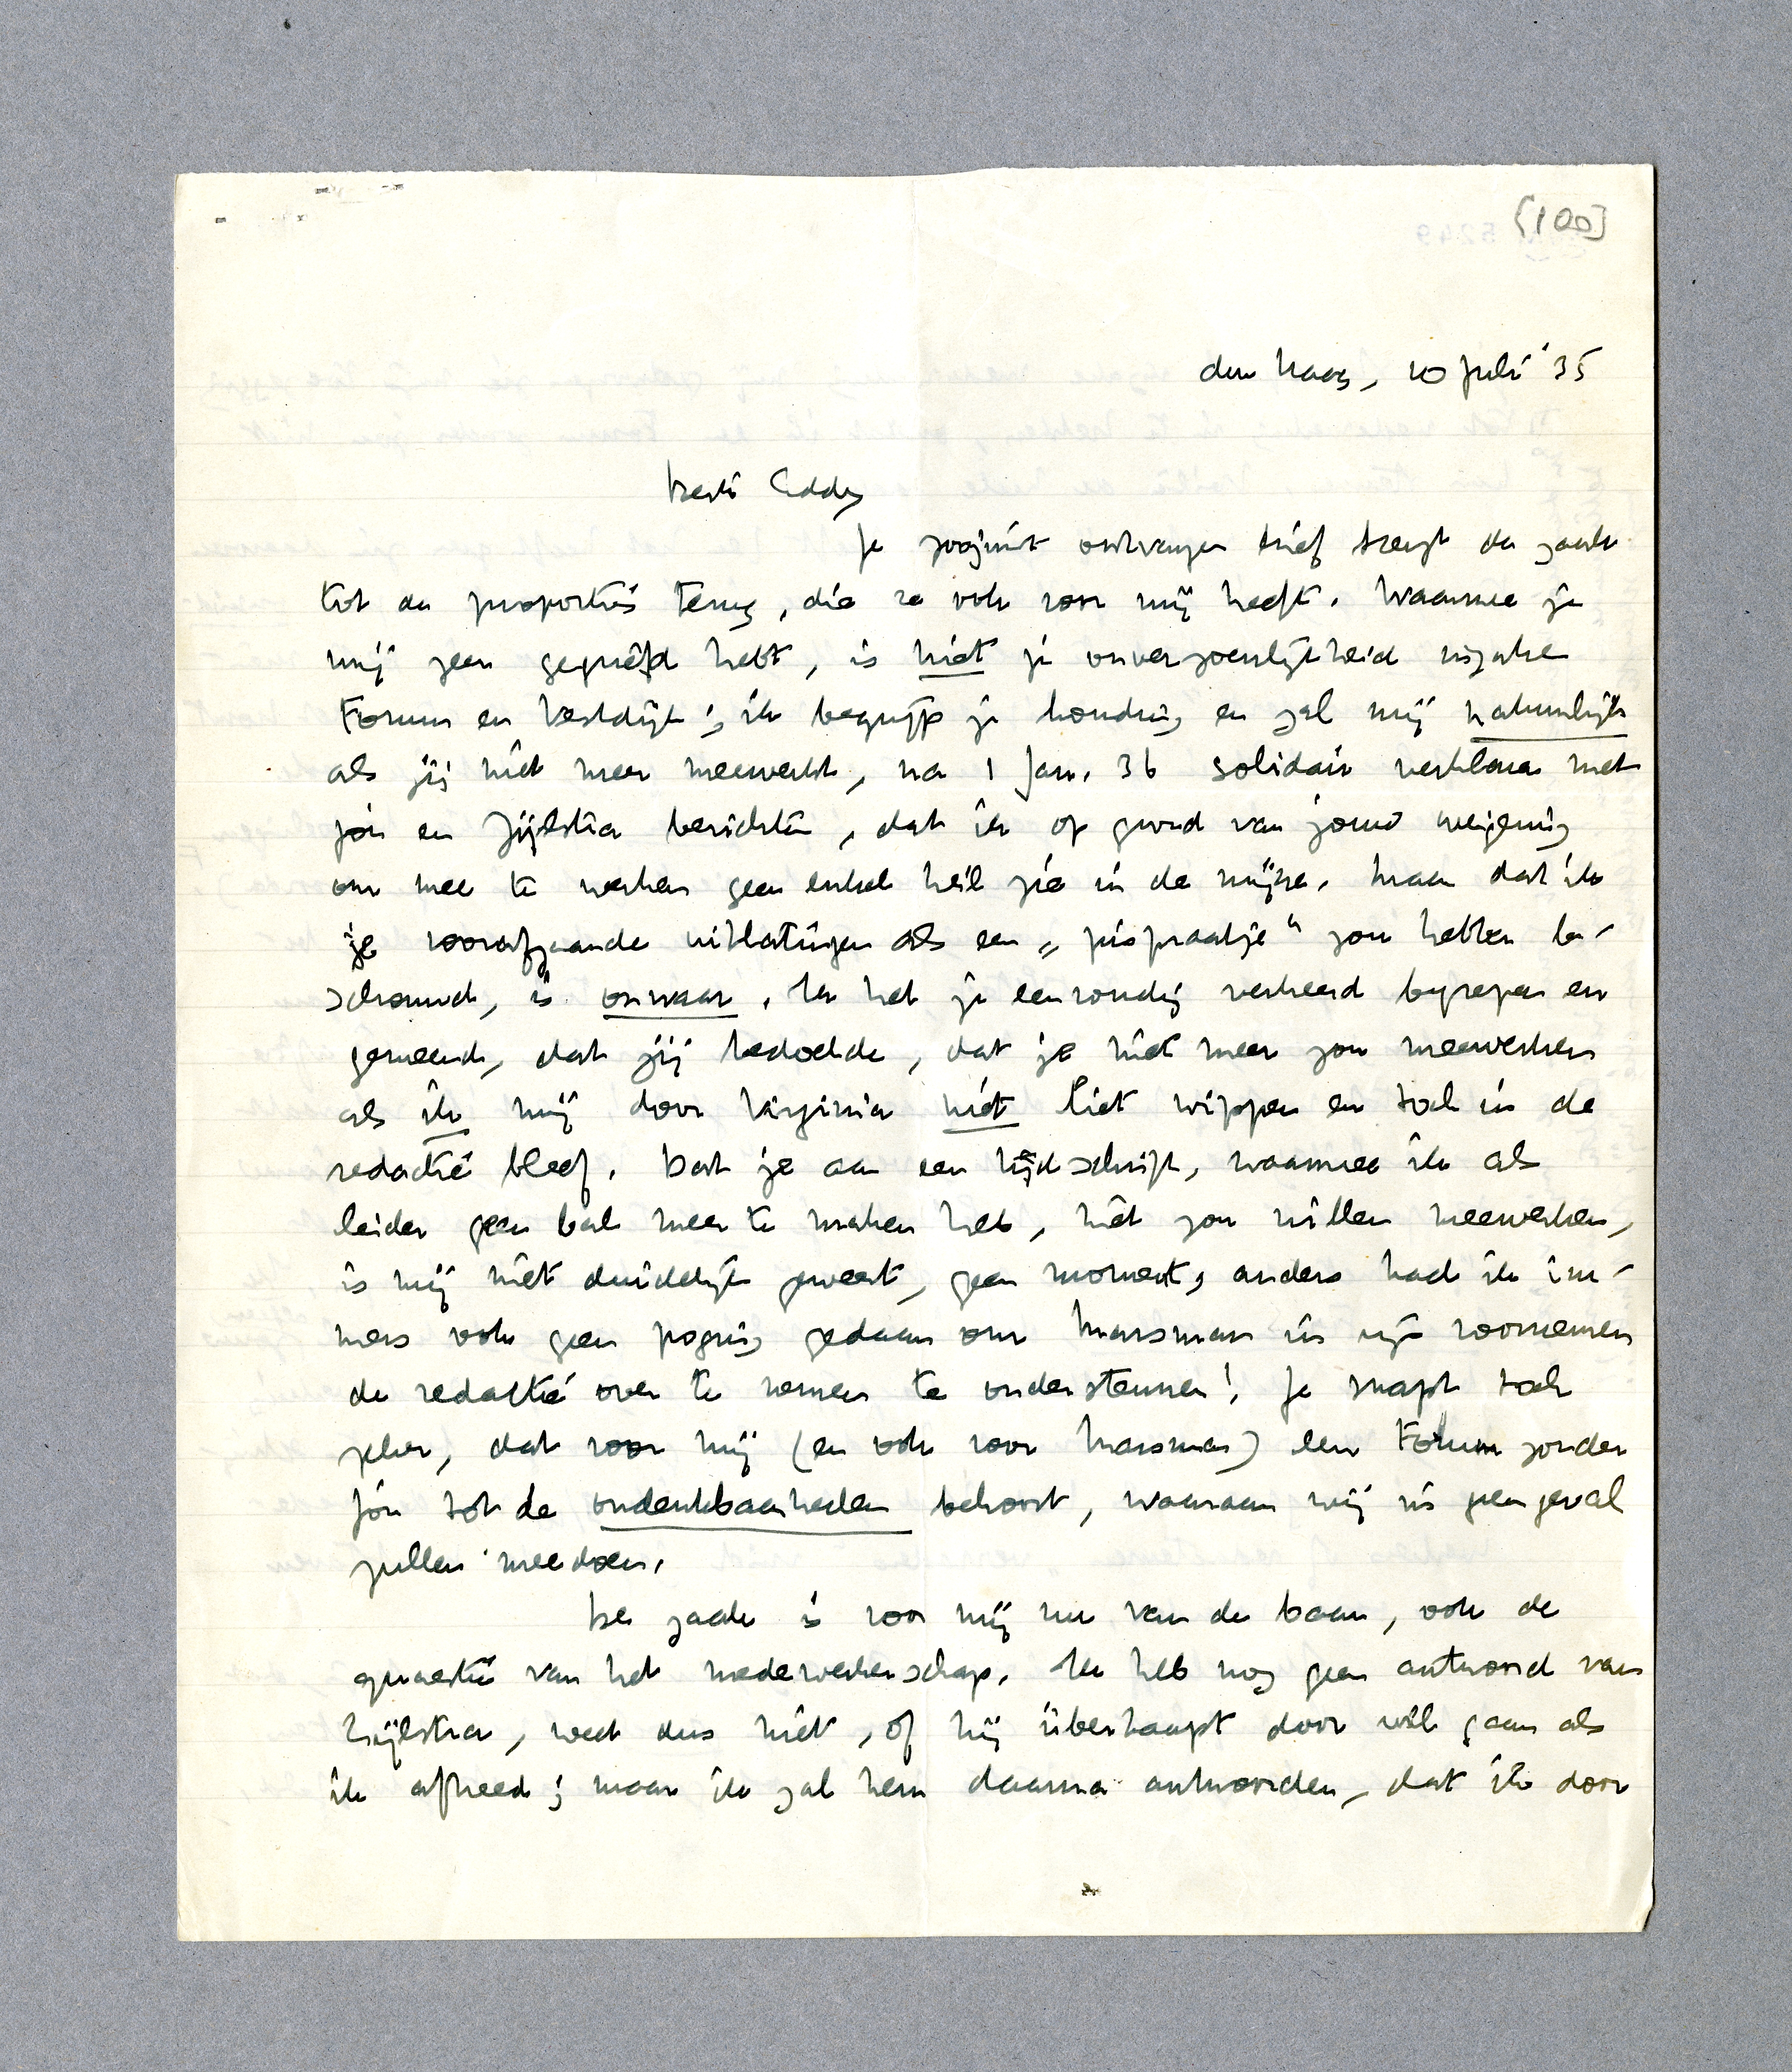 [100]
den Haag, 10 Juli '35
Beste Eddy
Je zoojuist ontvangen brief brengt de zaak
tot de proporties terug, die ze ook voor mij heeft. Waarmee je
mij zeer gegriefd hebt, is niet je onverzoenlijkheid inzake
Forum en Vestdijk; ik begrijp je houding en zal mij natuurlijk
als jij niet meer meewerkt, na 1 Jan. 36 solidair verklaren met
jou en Zijlstra berichten, dat ik op grond van jouw weigering
om mee te werken geen enkel heil zie in de mijne. Maar dat ik
je voorafgaande uitlatingen als een „pispraatje" zou hebben be-
schouwd, is onwaar. Ik heb je eenvoudig verkeerd begrepen en
gemeend, dat jij bedoelde, dat je niet meer zou meewerken
als ik mij door Virginia niet liet wippen en toch in de
redactie bleef. Dat je aan een tijdschrift, waarmee ik als
leider geen bal meer te maken heb, niet zou willen meewerken,
is mij niet duidelijk geweest, geen moment; anders had ik im-
mers ook geen poging gedaan om Marsman in zijn voornemen
de redactie over te nemen te ondersteunen! Je snapt toch
zeker, dat voor mij (en ook voor Marsman) een Forum zonder
jou tot de ondenkbaarheden behoort, waaraan wij in geen geval
zullen meedoen.
De zaak is voor mij nu van de baan, ook de
quaestie van het medewerkerschap. Ik heb nog geen antwoord van
Zijlstra, weet dus niet, of hij überhaupt door wil gaan als
ik aftreed; maar ik zal hem daarna antwoorden, dat ik door